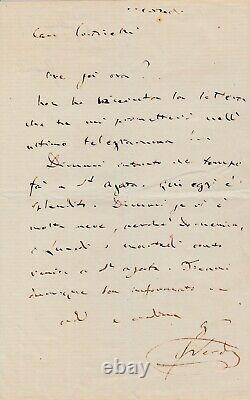 Caro Corticelli
Ove sei ora?
Non ho ricevuto la lettera
che tu mi promettevi nell'
ultimo telegramma!..
Dimmi intanto che tempo
fa a St Agata. Qui oggi è
splendido. Dimmi se vi è
molta neve, perchè domenica,
o lunedì o martedì conto
venire a St Agata. Tienmi
dunque ben informato
addio
G Verdi